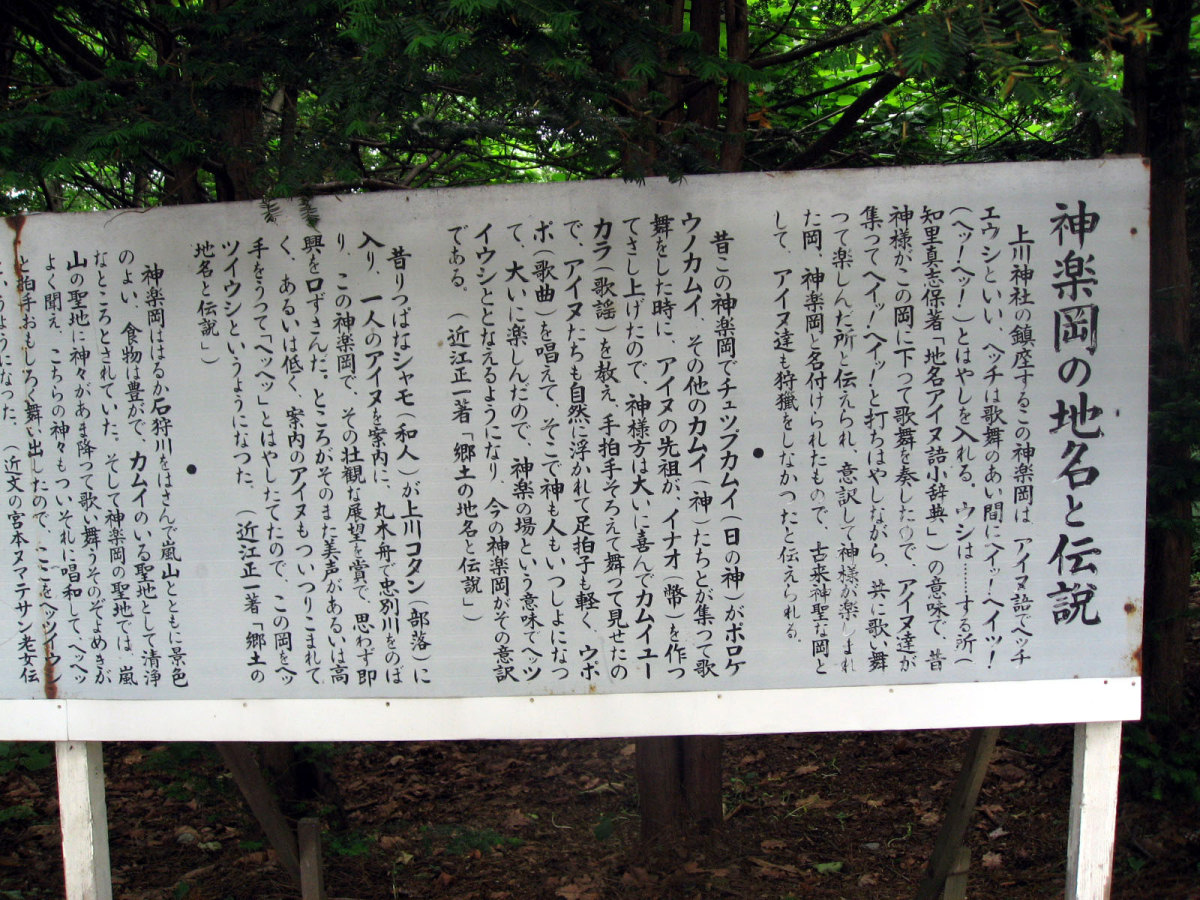 神楽岡の地名と伝説
上川神社の鎮座するこの神楽岡は、アイヌ語でヘッチ
エウシといい、ヘッチは歌舞のあい間にヘイッ!ヘイッ!
(ヘッ!ヘッ!)とはやしを入れる。ウシは……する所(
知里真志保著「地名アイヌ語小辞典」)の意味で、昔
神様がこの岡に下つて歌舞を奏したので、アイヌ達が
集つてヘイッ!ヘイッ!と打ちはやしながら、共に歌い舞
つて楽しんだ所と伝えられ、意訳して神様が楽しまれ
た岡、神楽岡と名付けられたもので、古来神聖な岡と
して、アイヌ達も狩獵をしなかつたと伝えられる。
●
昔この神楽岡でチュップカムイ(日の神)がポロケ
ウノカムイ、その他のカムイ(神)たちとが集つて歌
舞をした時に、アイヌの先祖が、イナオ(幣)を作つ
てさし上げたので、神様方は大いに喜んでカムイユー
カラ(歌謡)を教え、手拍手そろえて舞つて見せたの
で、アイヌたちも自然に浮かれて足拍子も軽く、ウポ
ポ(歌曲)を唱えて、そこで神も人もいつしよになつ
て、大いに楽しんだので、神楽の場という意味でヘッツ
イウシととなえるようになり、今の神楽岡がその意訳
である。(近江正一著「郷土の地名と伝説」)
昔りつぱなシャモ(和人)が上川コタン(部落)に
入り、一人のアイヌを案内に、丸木舟で忠別川をのぼ
り、この神楽岡で、その壮観な展望を賞で、思わず即
興を口ずさんだ。ところがそのまた美声があるいは高
く、あるいは低く、案内のアイヌもついつりこまれて
手をうつて「ヘッヘッ」とはやしたてたので、この岡をヘッ
ツイウシというようになつた。(近江正一著「郷土の
地名と伝説」)
●
神楽岡ははるか石狩川をはさんで嵐山とともに景色
のよい、食物は豊かで、カムイのいる聖地として清浄
なところとされていた。そして神楽岡の聖地では、嵐
山の聖地に神々があま降つて歌い舞うそのぞよめきが
よく聞え、こちらの神々もついそれに唱和して、ヘッヘッ
と拍手おもしろく舞い出したので、ここをヘッツイウシ
というようになつた。(近文の宮本ヌマテサン老女伝